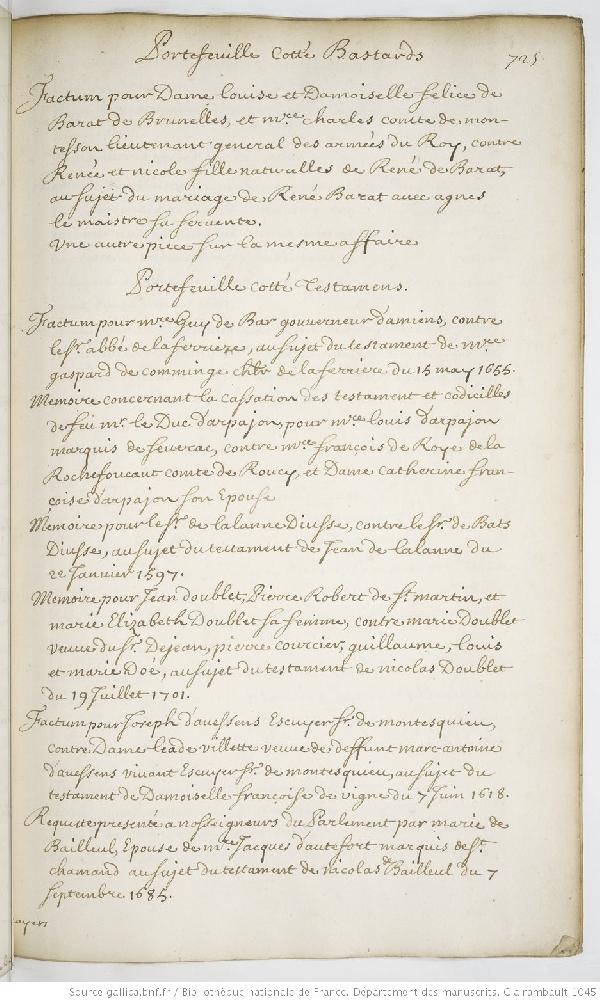 Portefeuille Cotté Bastards
725
Factum pour Dame Louise et Damoiselle felice de
Barat de Brunelles, et mre. charles comte de mon-
tesson lieutenant general des armées du Roy, contre
Renée et nicole fille naturalles de René de Barat,
au sujet du mariage de René Barat avec agnes
le maistre sa servente.
Une autre piece sur la mesme affaire
Portefeuille cotté Testamens.
Factum pour mre. Guy de Bar gouverneur d'amiens, contre
le sr. abbé de la ferriere, au sujet du testament de mre.
gaspard de comminge chlr. de la ferriere du 15 may 1655.
Memoire concernant la cassation des testament et codicilles
de feu mr. le Duc d'arpajon, pour mre. louis d'arpajon
marquis de severac, contre mre. françois de Roye de la
Rochefoucaut comte de Roucy, et Dame catherine fran-
çoise d'arpajon son Epouse
Memoire pour le sr. de lalanne Diusse, contre le sr. de Bats
Diusse, au sujet du testament de Jean de lalanne du
2e Janvier 1597.
Memoire pour Jean doublet, Pierre Robert de st. martin, et
marie Elizabeth Doublet sa femme, contre marie Doublet
veuve du sr. Dejean, pierre courcier, guillaume, louis
et marie Doé, au sujet du testament de nicolas Doublet
du 19 Juillet 1701.
Factum pour Joseph d'avessens Escuyer sr. de montesquieu,
contre Dame lea de villette veuve de deffunt marc antoine
d'avessens vivant Escuyer sr. de montesquieu, au sujet du
testament de Damoiselle françoise de vigne du 7 Juin 1618.
Requeste presenté a nosseigneurs du Parlement par marie de
Bailleul, Epouse de mre. Jacques d'autefort marquis de st.
chamand au sujet du testament de nicolas de Bailleul du 7
septembre 1685.
Source gallica.bnf.fr / Bibliothèque nationale de France. Département des manuscrits. Clairambault 1045